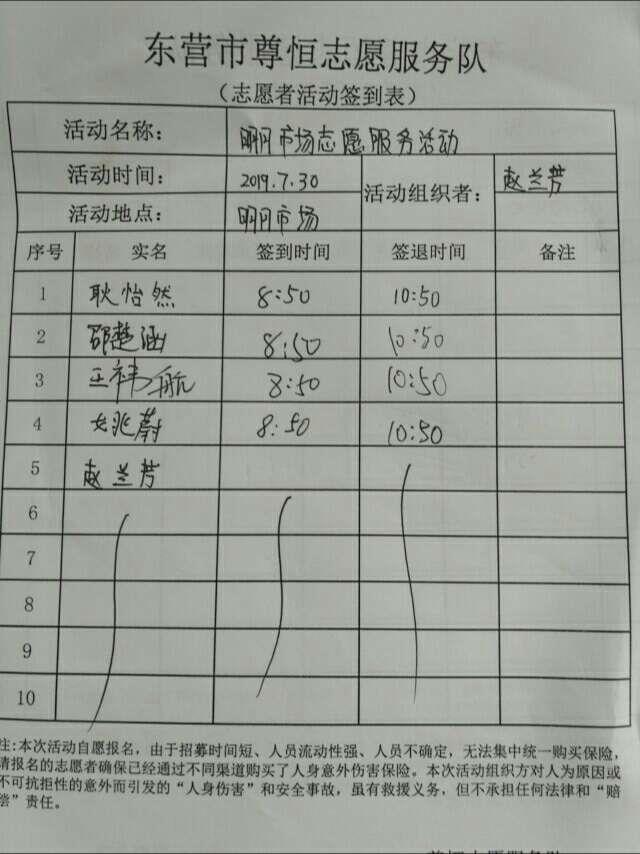 东营市尊恒志愿服务队
(志愿者活动签到表)
活动名称: 明月市场志愿服务活动
活动时间: 2019.7.30 活动组织者: 赵兰芳
活动地点: 明月市场
序号 实名 签到时间 签退时间 备注
1 耿怡然 8:50 10:50
2 邵楚涵 8:50 10:50
3 王祎航 8:50 10:50
4 兆蔚 8:50 10:50
5 赵兰芳
6
7
8
9
10
注:本次活动自愿报名,由于招募时间短、人员流动性强、人员不确定,无法集中统一购买保险,
请报名的志愿者确保已经通过不同渠道购买了人身意外伤害保险。本次活动组织方对人为原因或
不可抗拒性的意外而引发的“人身伤害”和安全事故,虽有救援义务,但不承担任何法律和“赔
偿”责任。